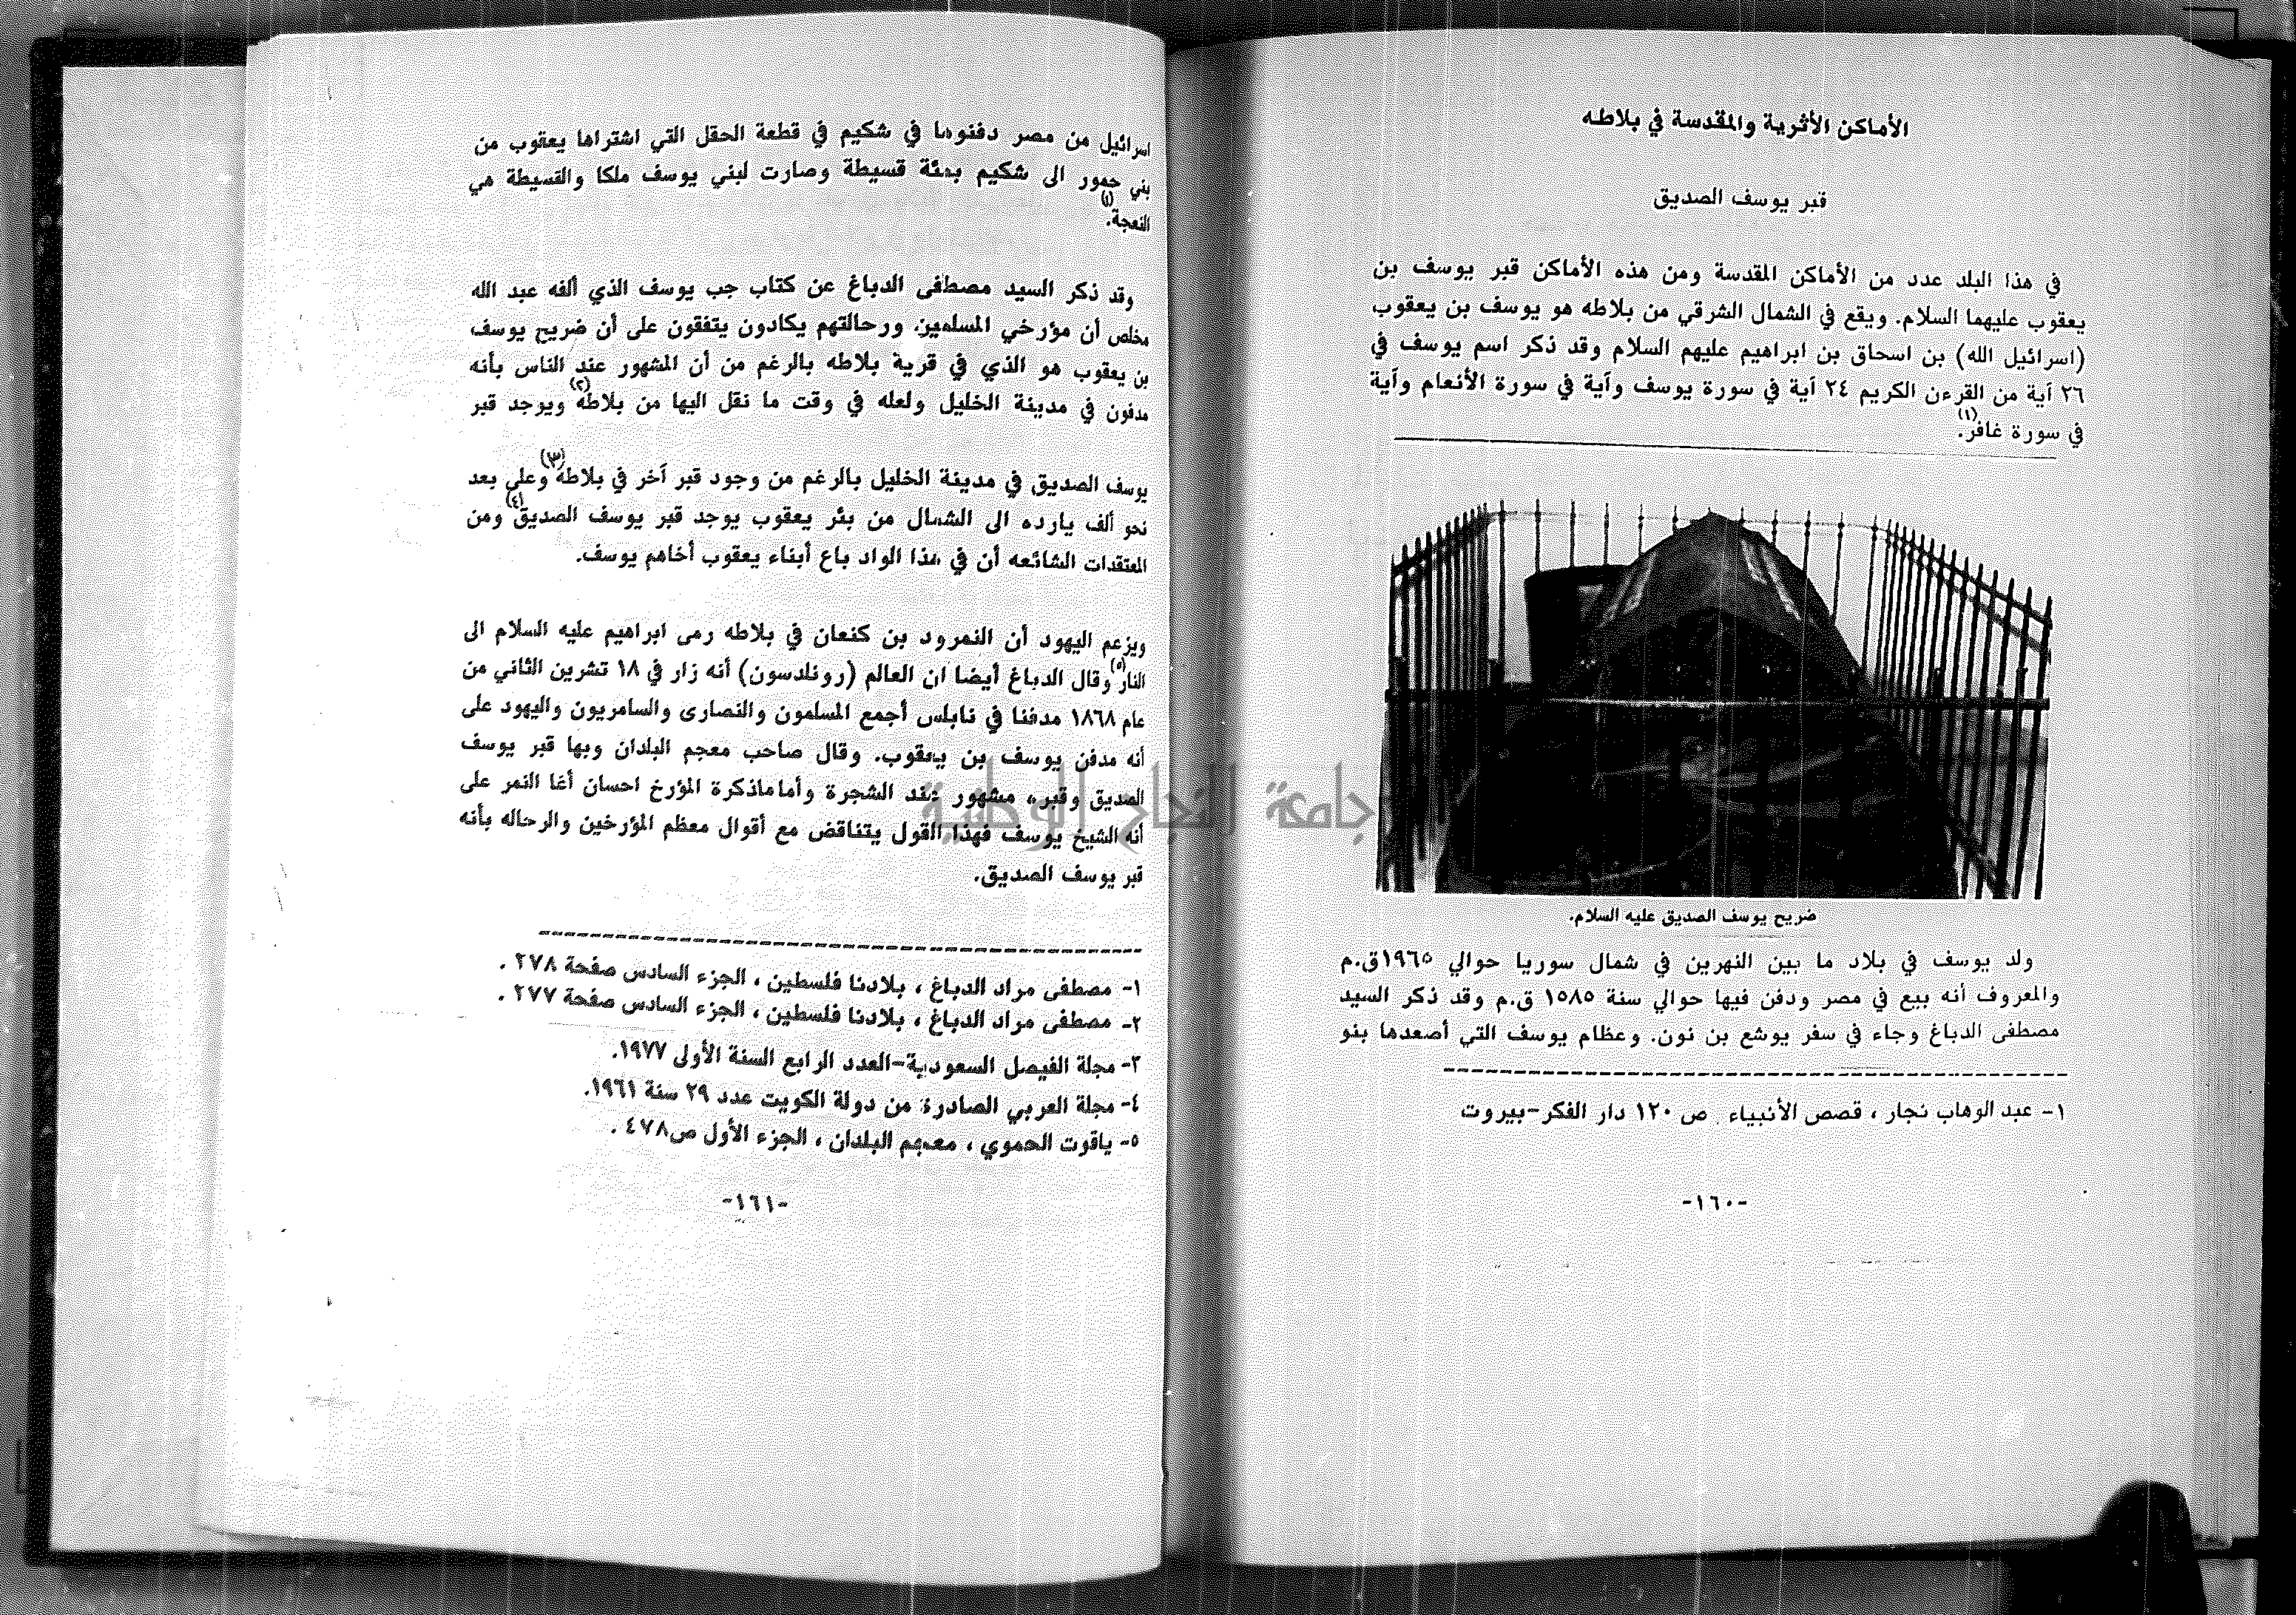 الأماكن الأثرية والمقدسة في بلاطه
قبر يوسف الصديق
في هذا البلد عدد من الأماكن المقدسة ومن هذه الأماكن قبر يوسف بن
يعقوب عليهما السلام. ويقع في الشمال الشرقي من بلاطه هو يوسف بن يعقوب
(اسرائيل الله) بن اسحاق بن ابراهيم عليهم السلام وقد ذكر اسم يوسف في
٢٦ آية من القرءن الكريم ٢٤ آية في سورة يوسف وآية في سورة الأنعام وآية
في سورة غافر.(١)
ضريح يوسف الصديق عليه السلام.
ولد يوسف في بلاد ما بين النهرين في شمال سوريا حوالي ١٩٦٥ق.م
والمعروف أنه بيع في مصر ودفن فيها حوالي سنة ١٥٨٥ ق.م وقد ذكر السيد
مصطفى الدباغ وجاء في سفر يوشع بن نون. وعظام يوسف التي أصعدها بنو
١- عبد الوهاب نجار ، قصص الأنبياء ص ١٢٠ دار الفكر-بيروت
-١٦٠-
اسرائيل من مصر دفنوها في شكيم في قطعة الحقل التي اشتراها يعقوب من
بني حمور الى شكيم بمئة قسيطة وصارت لبني يوسف ملكا والقسيطة هي
النعجة.(١)
وقد ذكر السيد مصطفى الدباغ عن كتاب جب يوسف الذي ألفه عبد الله
مخلص أن مؤرخي المسلمين ورحالتهم يكادون يتفقون على أن ضريح يوسف
بن يعقوب هو الذي في قرية بلاطه بالرغم من أن المشهور عند الناس بأنه
مدفون في مدينة الخليل ولعله في وقت ما نقل اليها من بلاطه(٢) ويوجد قبر
يوسف الصديق في مدينة الخليل بالرغم من وجود قبر آخر في بلاطه(٣) وعلى بعد
نحو ألف يارده الى الشمال من بئر يعقوب يوجد قبر يوسف الصديق(٤) ومن
المعتقدات الشائعه أن في هذا الواد باع أبناء يعقوب أخاهم يوسف.
ويزعم اليهود أن النمرود بن كنعان في بلاطه رمى ابراهيم عليه السلام الى
النار(٥) وقال الدباغ أيضا ان العالم (رونلدسون) أنه زار في ١٨ تشرين الثاني من
عام ١٨٦٨ مدفنا في نابلس أجمع المسلمون والنصارى والسامريون واليهود على
أنه مدفن يوسف بن يعقوب. وقال صاحب معجم البلدان وبها قبر يوسف
الصديق وقبره مشهور عند الشجرة وأماماذكرة المؤرخ احسان أغا النمر على
أنه الشيخ يوسف فهذا القول يتناقض مع أقوال معظم المؤرخين والرحاله بأنه
قبر يوسف الصديق.
١- مصطفى مراد الدباغ ، بلادنا فلسطين ، الجزء السادس صفحة ٢٧٨ .
٢- مصطفى مراد الدباغ ، بلادنا فلسطين ، الجزء السادس صفحة ٢٧٧ .
٣- مجلة الفيصل السعودية-العدد الرابع السنة الأولى ١٩٧٧.
٤- مجلة العربي الصادرة من دولة الكويت عدد ٢٩ سنة ١٩٦١.
٥- ياقوت الحموي ، معجم البلدان ، الجزء الأول ص٤٧٨ .
-١٦١-
جامعة النجاح الوطنية